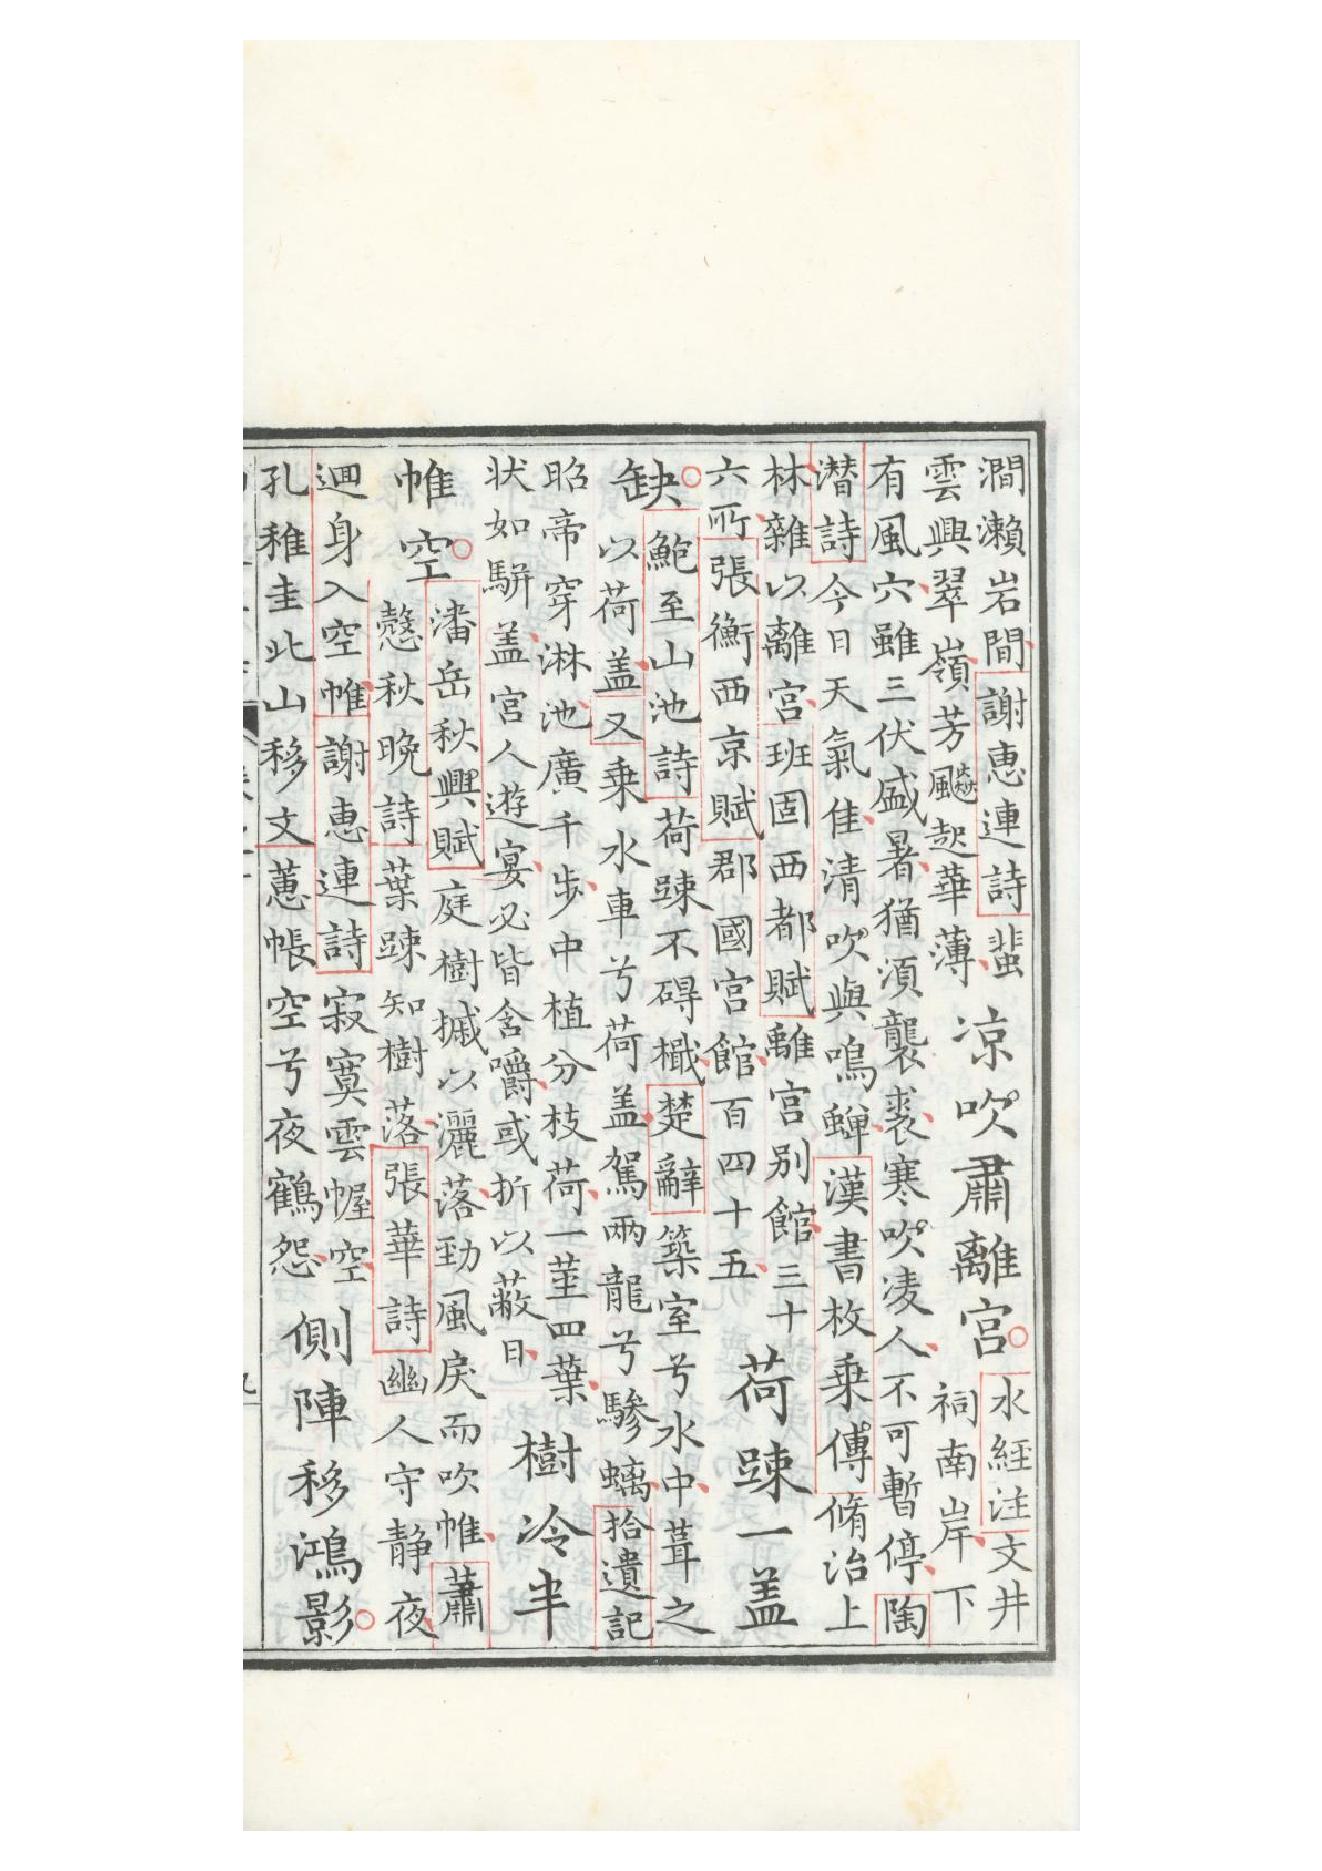 澗瀨岩間謝惠連詩蜚
雲興翠嶺芳飇起華薄
凉吹肅離宮
水經注文井
祠南岸下
有風穴雖三伏盛暑猶須襲裘寒吹凌人不可暫停陶
潛詩今日天氣佳清吹與鳴蟬漢書枚乗傅脩治上
林雜以離宮班固西都賦離宮別館三十
六所張衡西京賦郡國宮館百四十五
荷踈一盖
缺
鮑至山池詩荷踈不碍檝楚辭築室兮水中葺之
以荷盖又乗水車兮荷盖駕兩龍兮驂螭拾遺記
昭帝穿淋池廣千步中植分枝荷一莖四葉
状如駢盖宮人遊宴必皆含嚼或折以蔽日
樹冷半
帷空
潘岳秋興賦庭樹摵以灑落勁風戾而吹帷蕭
慤秋晚詩葉踈知樹落張華詩幽人守静夜
迴身入空帷謝惠連詩寂寞雲幄空
孔稚圭北山移文蕙帳空兮夜鶴怨
側陣移鴻影